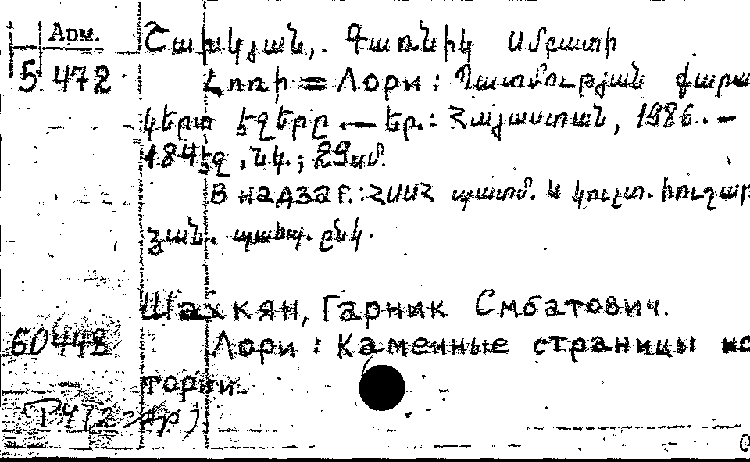 Арм.
5 472
Շախկյան, Գառնիկ Սմբատի
Լոռի = Лори : Պատմության քարա
կերտ էջերը .— Եր.: Հայաստան, 1986. —
184 էջ , նկ.; 29սմ.
В надзаг.: ՀՍՍՀ պատմ. և կուլտ. հուշար
ձան. պահպ. ընկ.
Шахкян, Гарник Смбатович.
60448 Лори : Каменные страницы ис
тории.